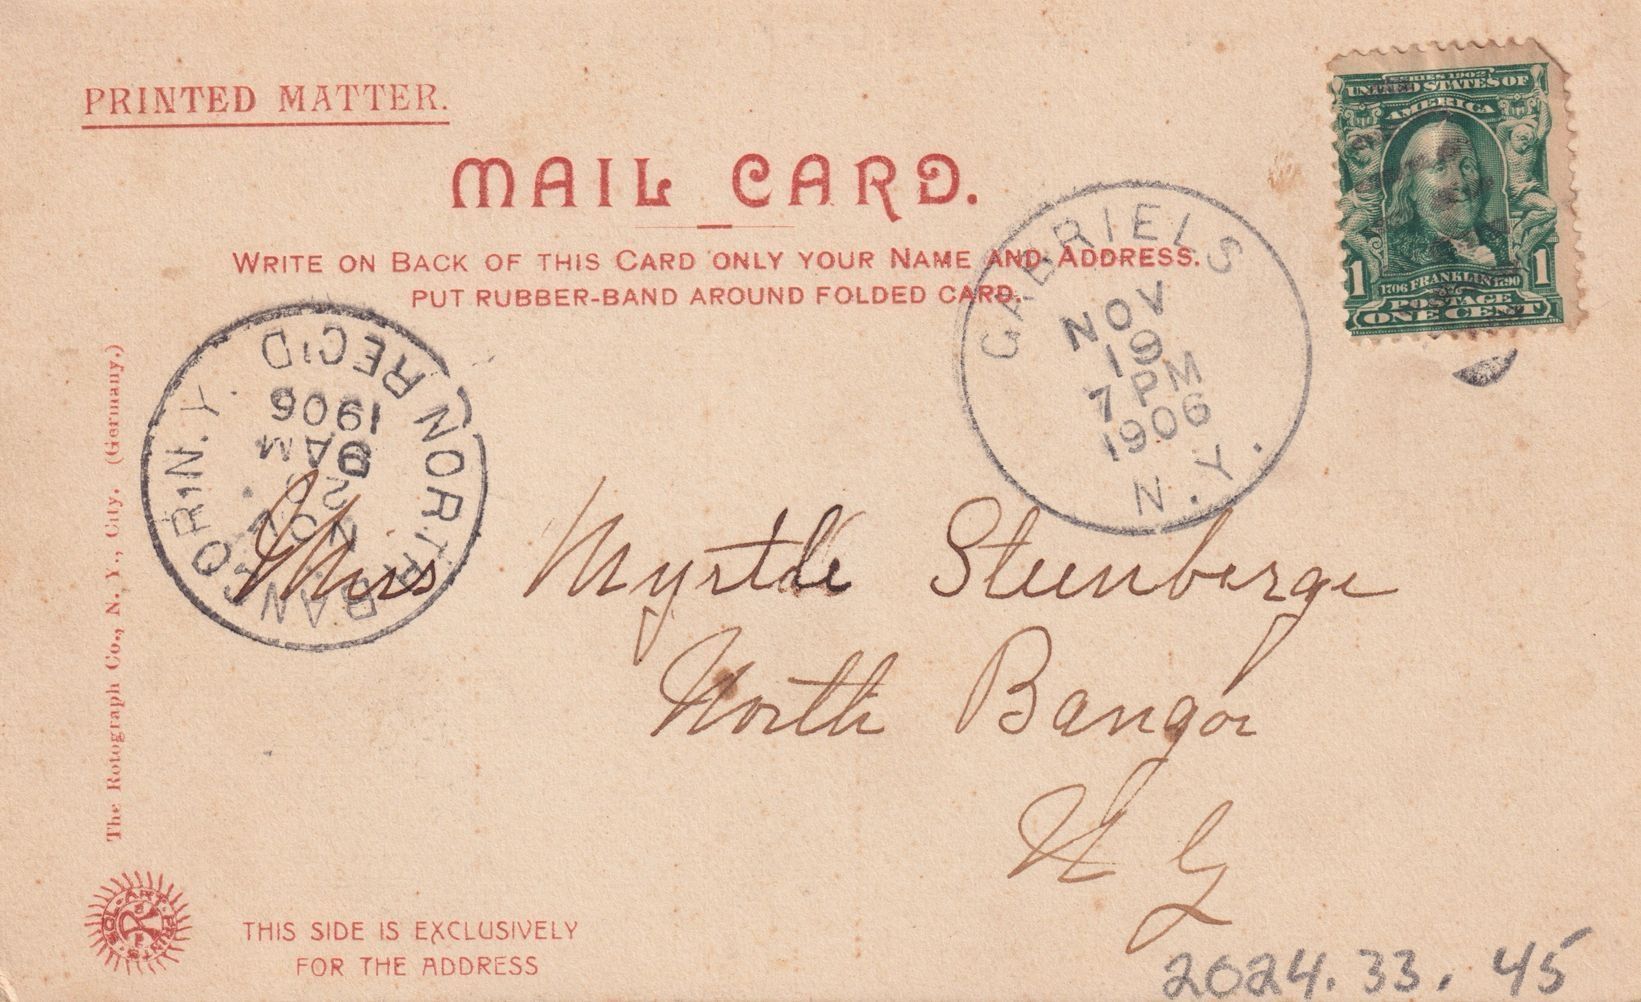 PRINTED MATTER.
MAIL CARD.
WRITE ON BACK OF THIS CARD ONLY YOUR NAME AND ADDRESS.
PUT RUBBER-BAND AROUND FOLDED CARD.
SERIES 1902
UNITED STATES OF
AMERICA
1706 FRANKLIN 1790
1 1
POSTAGE
ONE CENT
GABRIELS
NOV
19
7 PM
1906
N.Y.
NORTH BANGOR N.Y.
NOV
20
9 AM
1906
REC'D
Miss Myrtle Steenberge
North Bangor
N Y
The Rotograph Co., N. Y., City. (Germany.)
SOL-ART PRINTS
THIS SIDE IS EXCLUSIVELY
FOR THE ADDRESS
2024.33.45